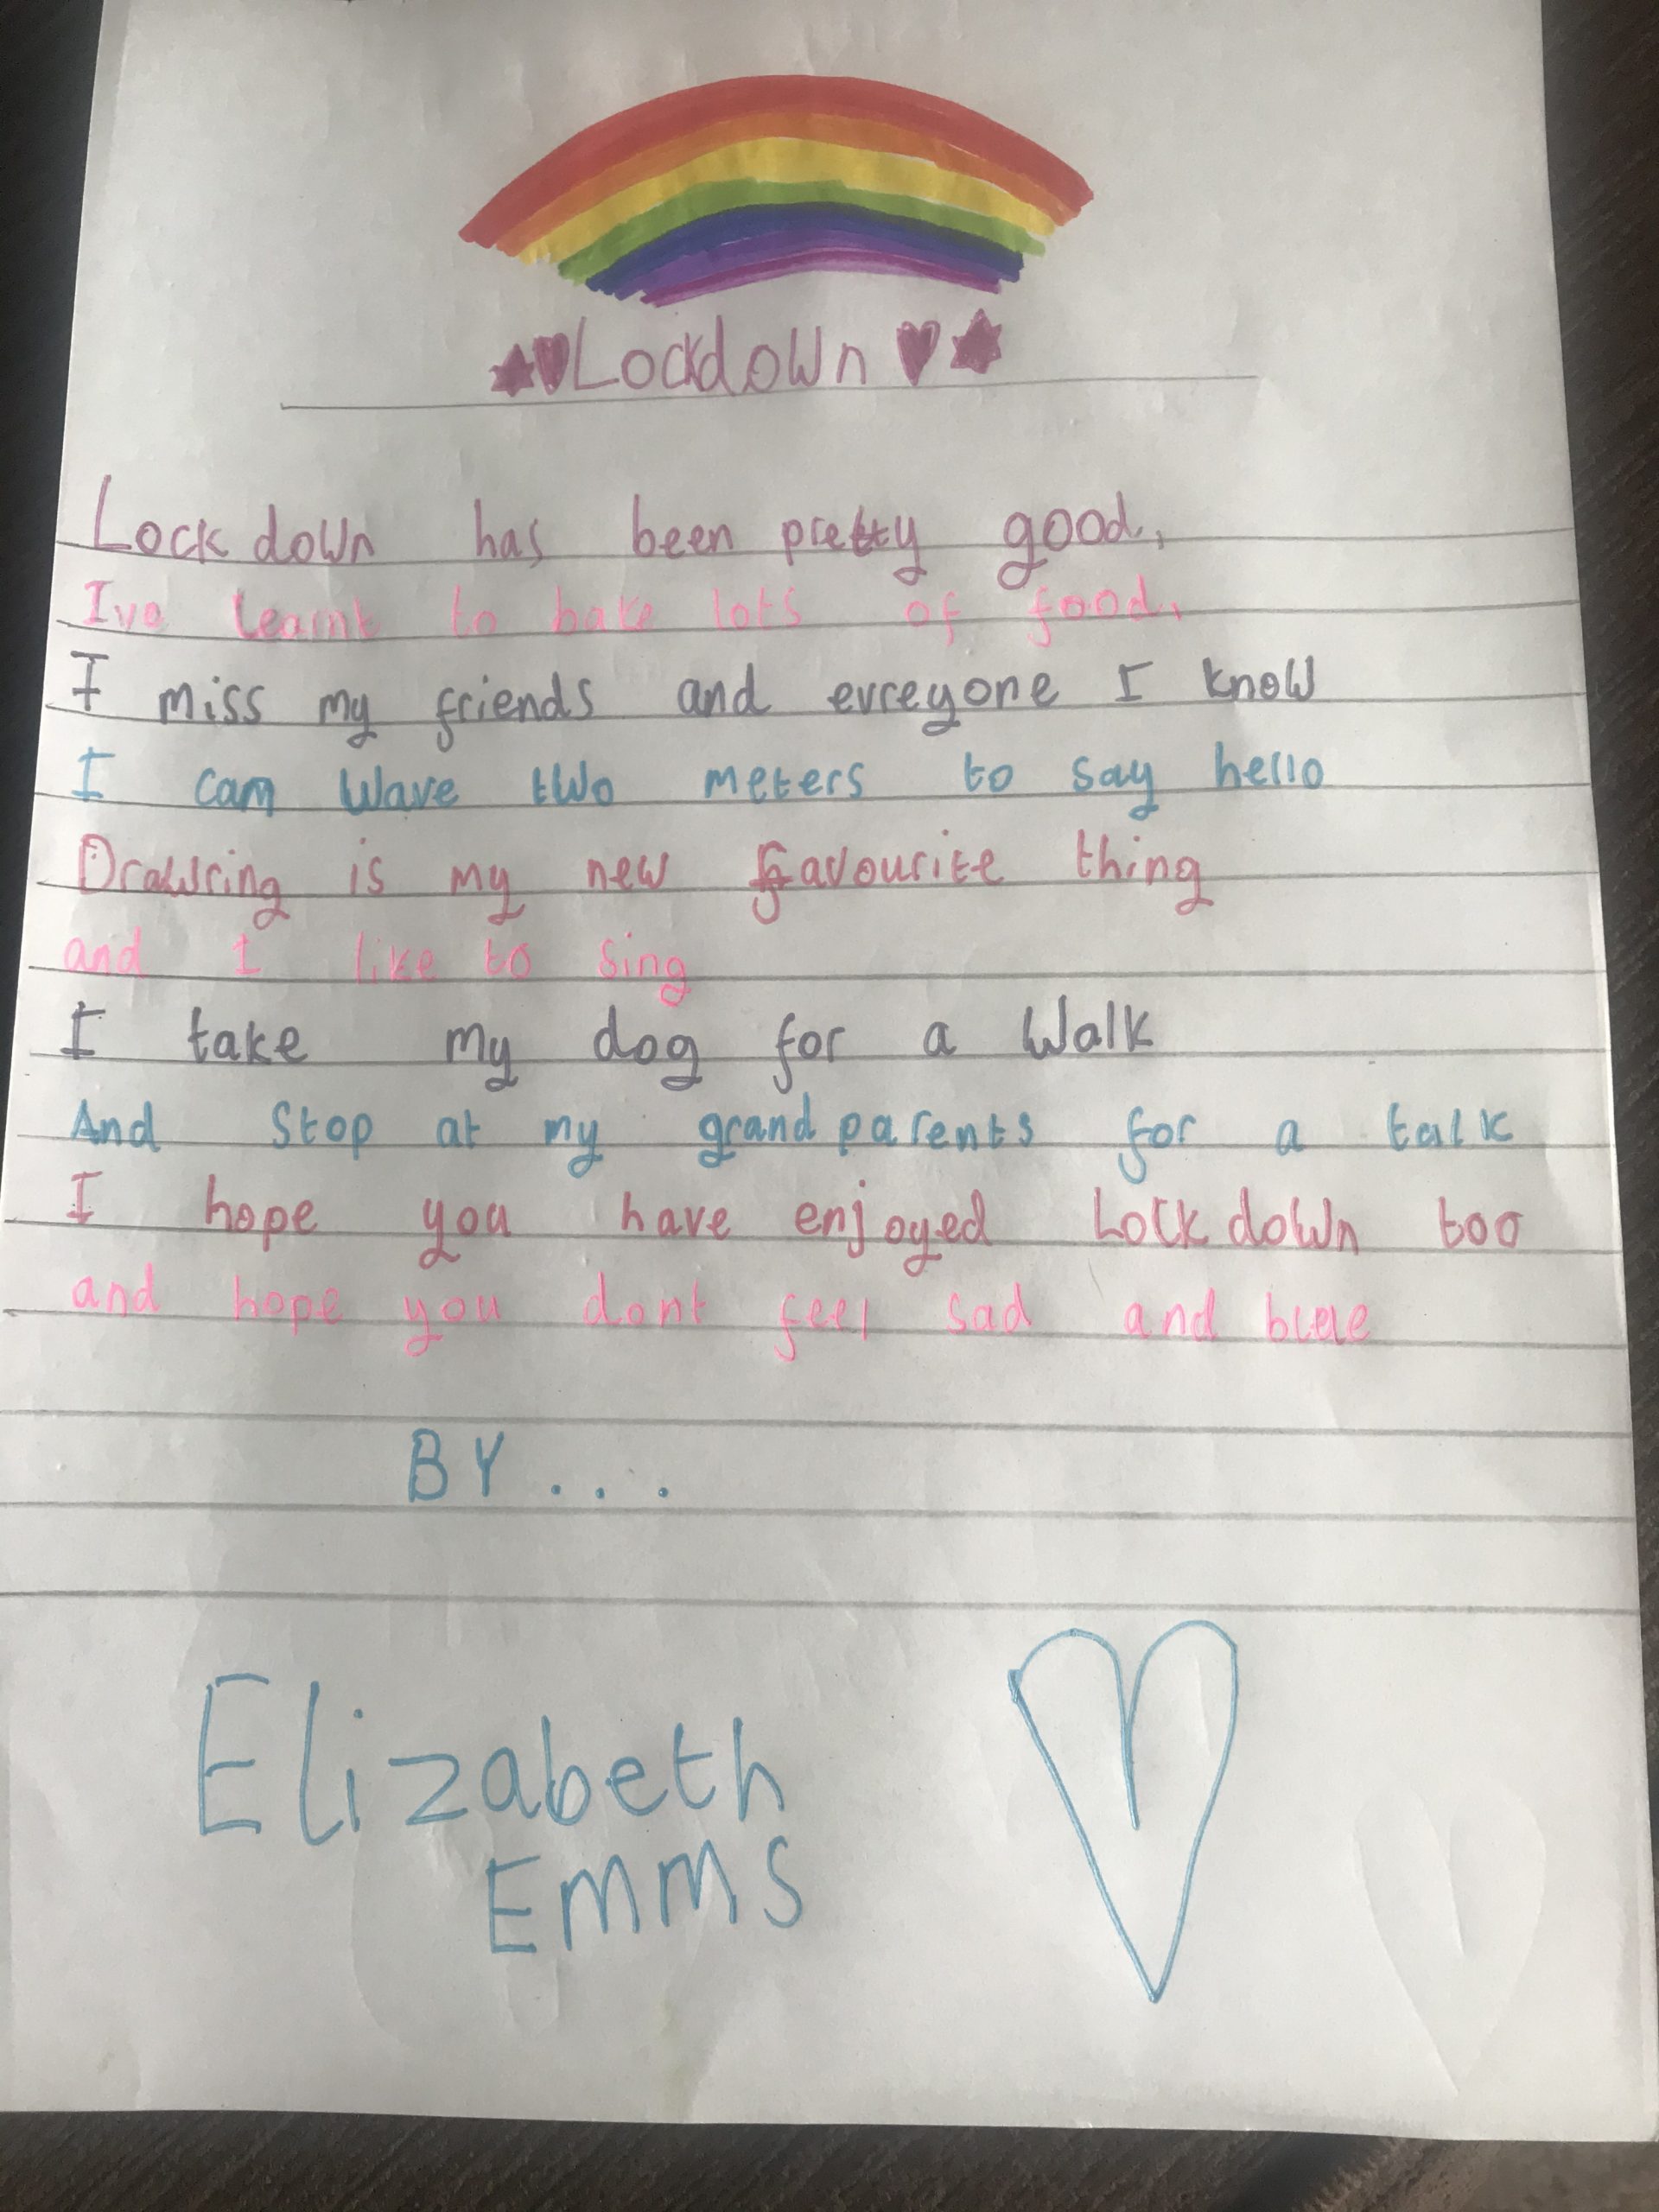 Lockdown
Lockdown has been pretty good,
Ive learnt to bake lots of food,
I miss my friends and evreyone I know
I cam wave two meters to say hello
Drawring is my new favourite thing
and I like to sing
I take my dog for a walk
And stop at my grandparents for a talk
I hope you have enjoyed Lockdown too
and hope you dont feel sad and blue
BY....
Elizabeth
Emms